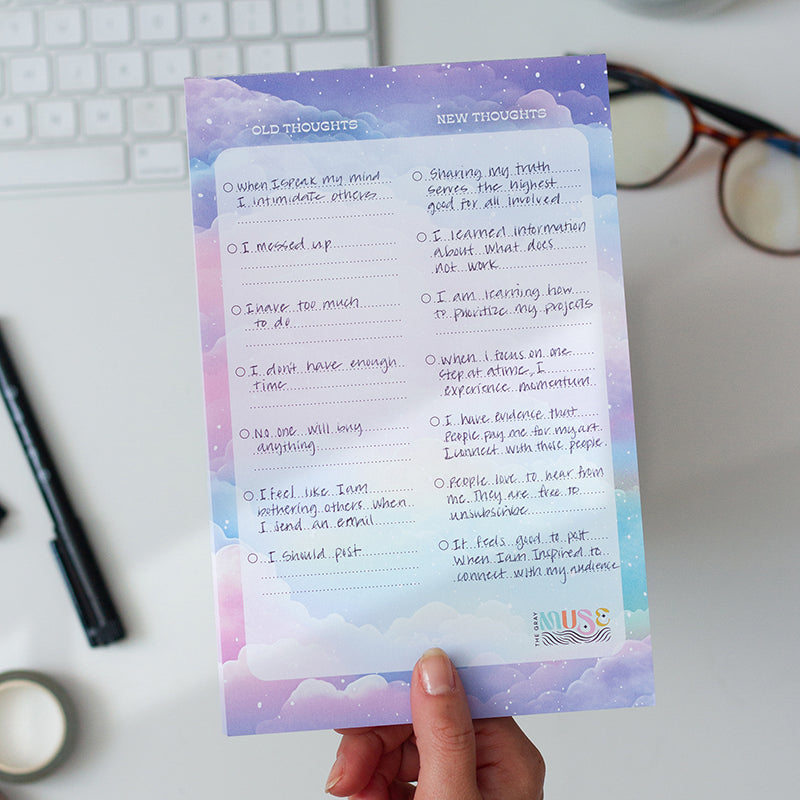 OLD THOUGHTS
When I speak my mind
I intimidate others
I messed up
I have too much
to do
I don't have enough
time
No one will buy
anything
I feel like I am
bothering others when
I send an email
I should post
NEW THOUGHTS
Sharing my truth
serves the highest
good for all involved
I learned information
about what does
not work
I am learning how
to prioritize my projects
When I focus on one
step at a time, I
experience momentum
I have evidence that
people pay me for my art
I connect with those people
People love to hear from
me. They are free to
unsubscribe
It feels good to post
when I am inspired to
connect with my audience
THE GRAY
MUSE